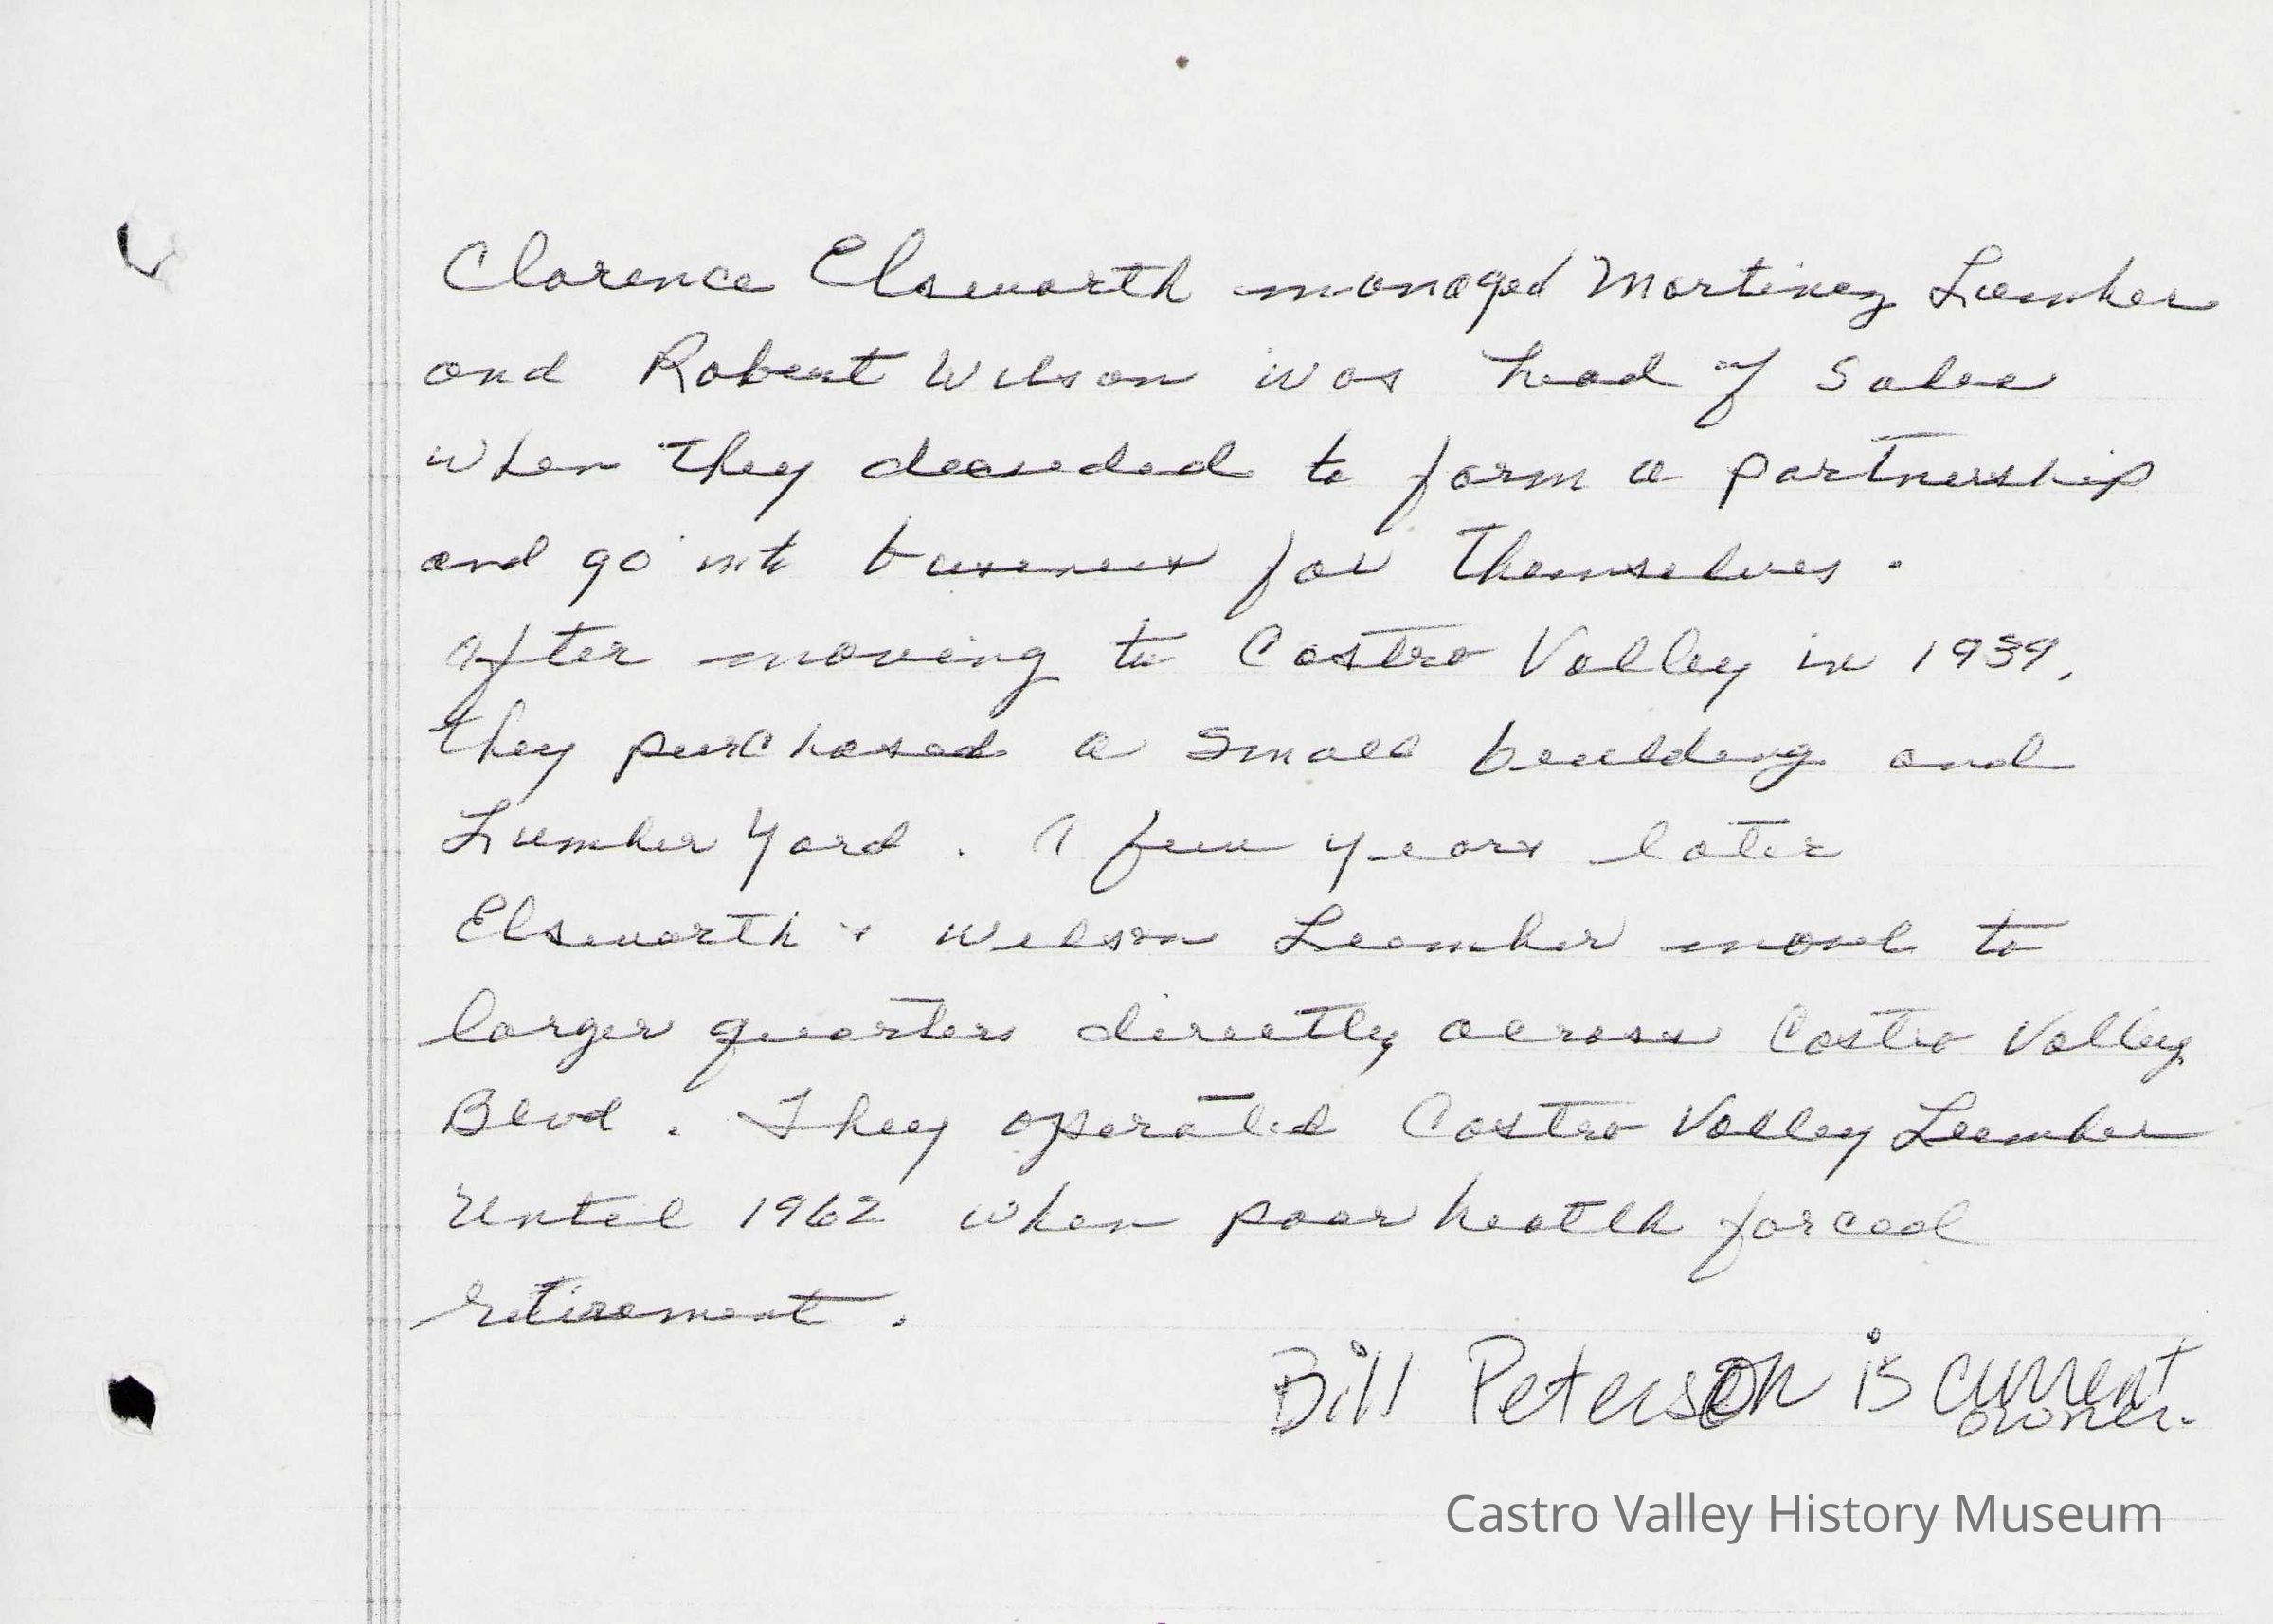 Clarence Elsworth managed Martinez Lumber
and Robert Wilson was head of Sales
when they decided to form a partnership
and go into business for themselves.
After moving to Castro Valley in 1939,
they purchased a small building and
Lumber Yard. A few years later
Elsworth & Wilson Lumber move to
larger quarters directly across Castro Valley
Blvd. They operated Castro Valley Lumber
until 1962 when poor health forced
retirement.
Bill Peterson is current
owner.
Castro Valley History Museum